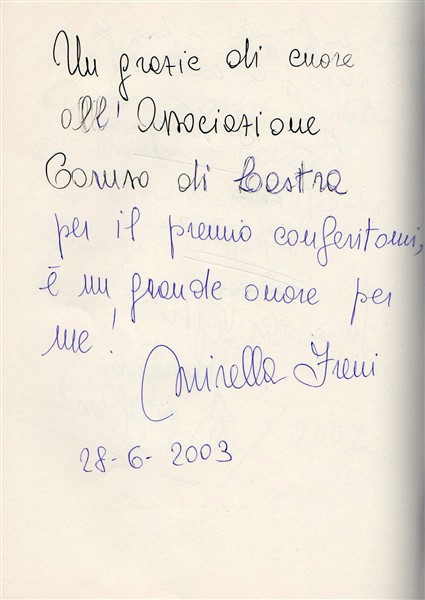 Un grazie di cuore
all' Associazione
Caruso di Lastra
per il premio conferitomi,
è un grande onore per
me!
Mirella Freni
28-6-2003